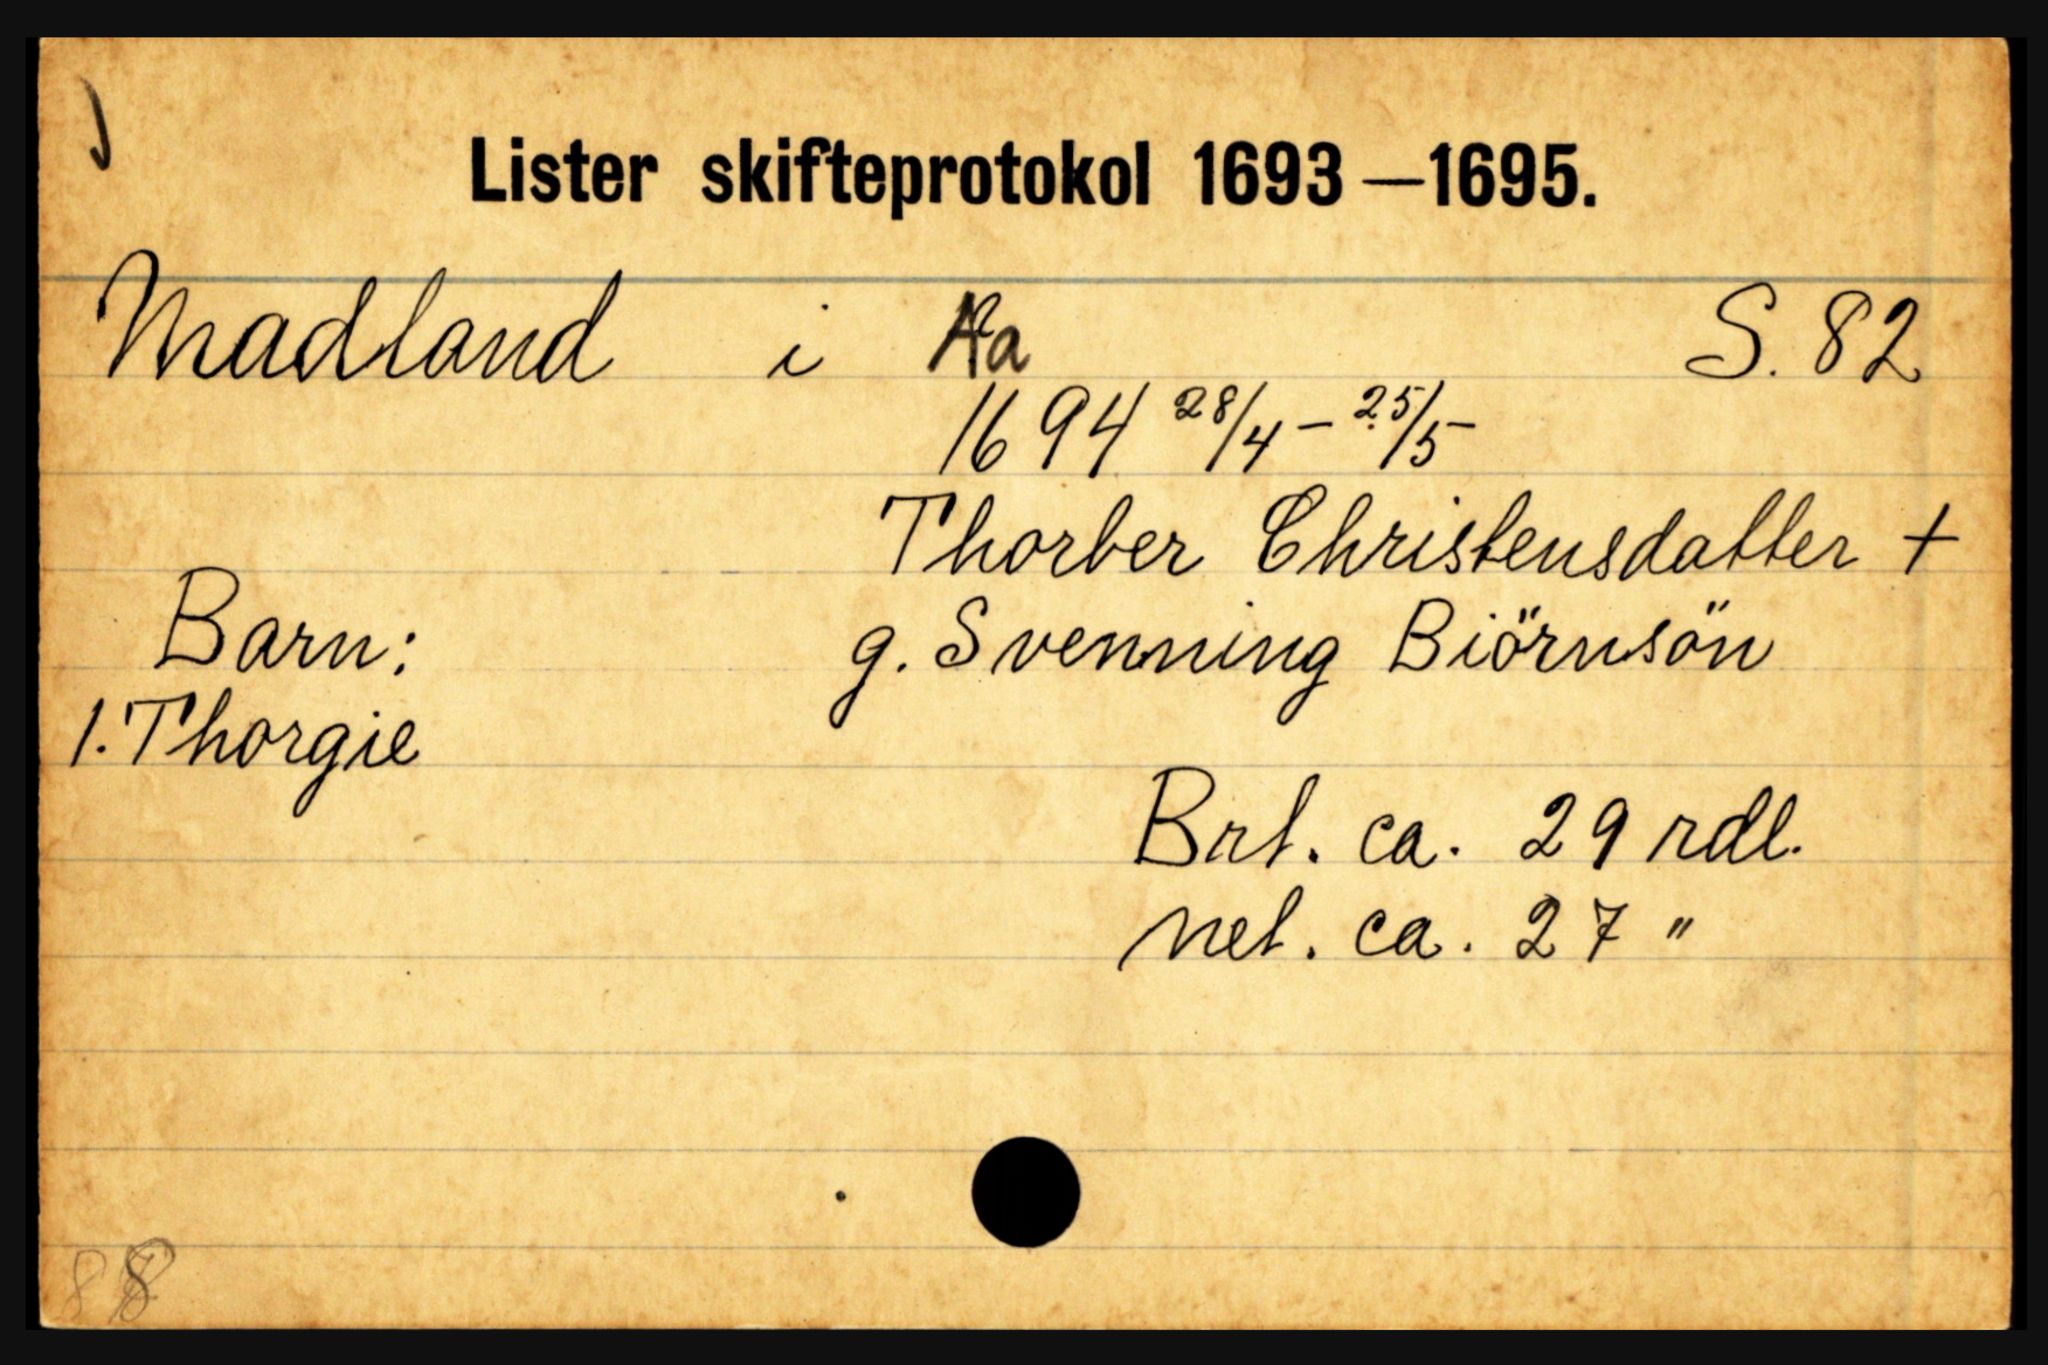 Lister skifteprotokol 1693—1695.
Madland i Aa S. 82
1694 28/4 – 25/5 –
Thorber Christensdatter +
Barn: g. Svenning Biörnsön
1. Thorgie
Brt. ca. 29 rdl.
net. ca. 27 "
88